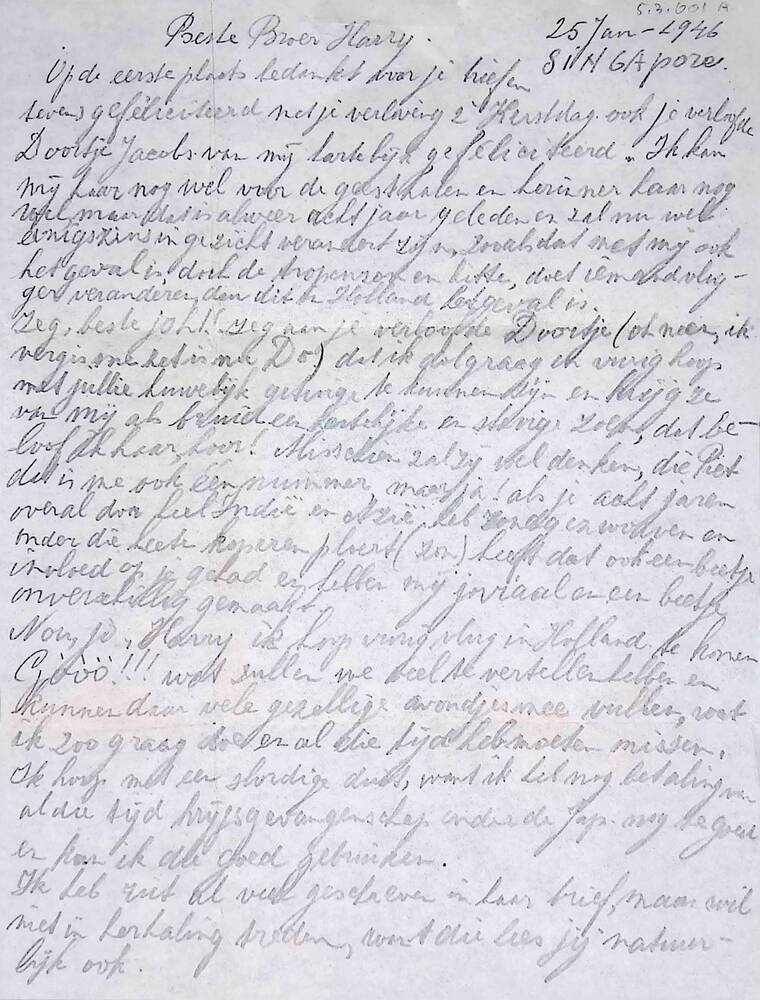 5.3.001 A
25 Jan - 1946
Beste Broer Harry.
SINGApore.
Op de eerste plaats bedankt voor je brieven
tevens gefeliciteerd met je verloving 2e Kerstdag ook je verloofde
Doortje Jacobs van mij hartelijk gefeliciteerd. Ik kan
mij haar nog wel voor de geest halen en herinner haar nog
wel, maar dat is alweer acht jaar geleden en zal nu wel
enigszins in gezicht verandert zijn, zooals dat met mij ook
het geval is, doch de tropenzon en hitte, doet iemand vlug-
ger veranderen, dan dit in Holland het geval is.
Zeg, beste joh!! zeg aan je verloofde Doortje (oh neen, ik
vergis me het is nu Do) dat ik dolgraag en vurig hoop
met jullie huwelijk getuige te kunnen zijn en krijg ze
van mij als bruid een hartelijke en stevige zoen, dat be-
loof ik haar, hoor! Misschien zal zij wel denken, die Piet
dat is me ook één nummer, maar ja! als je acht jaren
overal door heel Indië en Azië heb rondgezworven en
onder die heete koperen ploert (zon) heeft dat ook een beetje
invloed op je gehad en hebben mij joviaal en een beetje
onverschillig gemaakt.
Nou, jo, Harry ik hoop vurig vlug in Holland te komen
Gôôô!!! wat zullen we veel te vertellen hebben en
kunnen daar vele gezellige avondjes mee vullen, wat
ik zoo graag doe en al die tijd heb moeten missen.
Ik hoop met een slordige duit, want ik heb nog betaling van
al die tijd krijgsgevangenschap onder de Jap. nog te goed
en kan ik die goed gebruiken.
Ik heb zus al veel geschreven in haar brief, maar wil
niet in herhaling treden, want die lees jij natuur-
lijk ook.